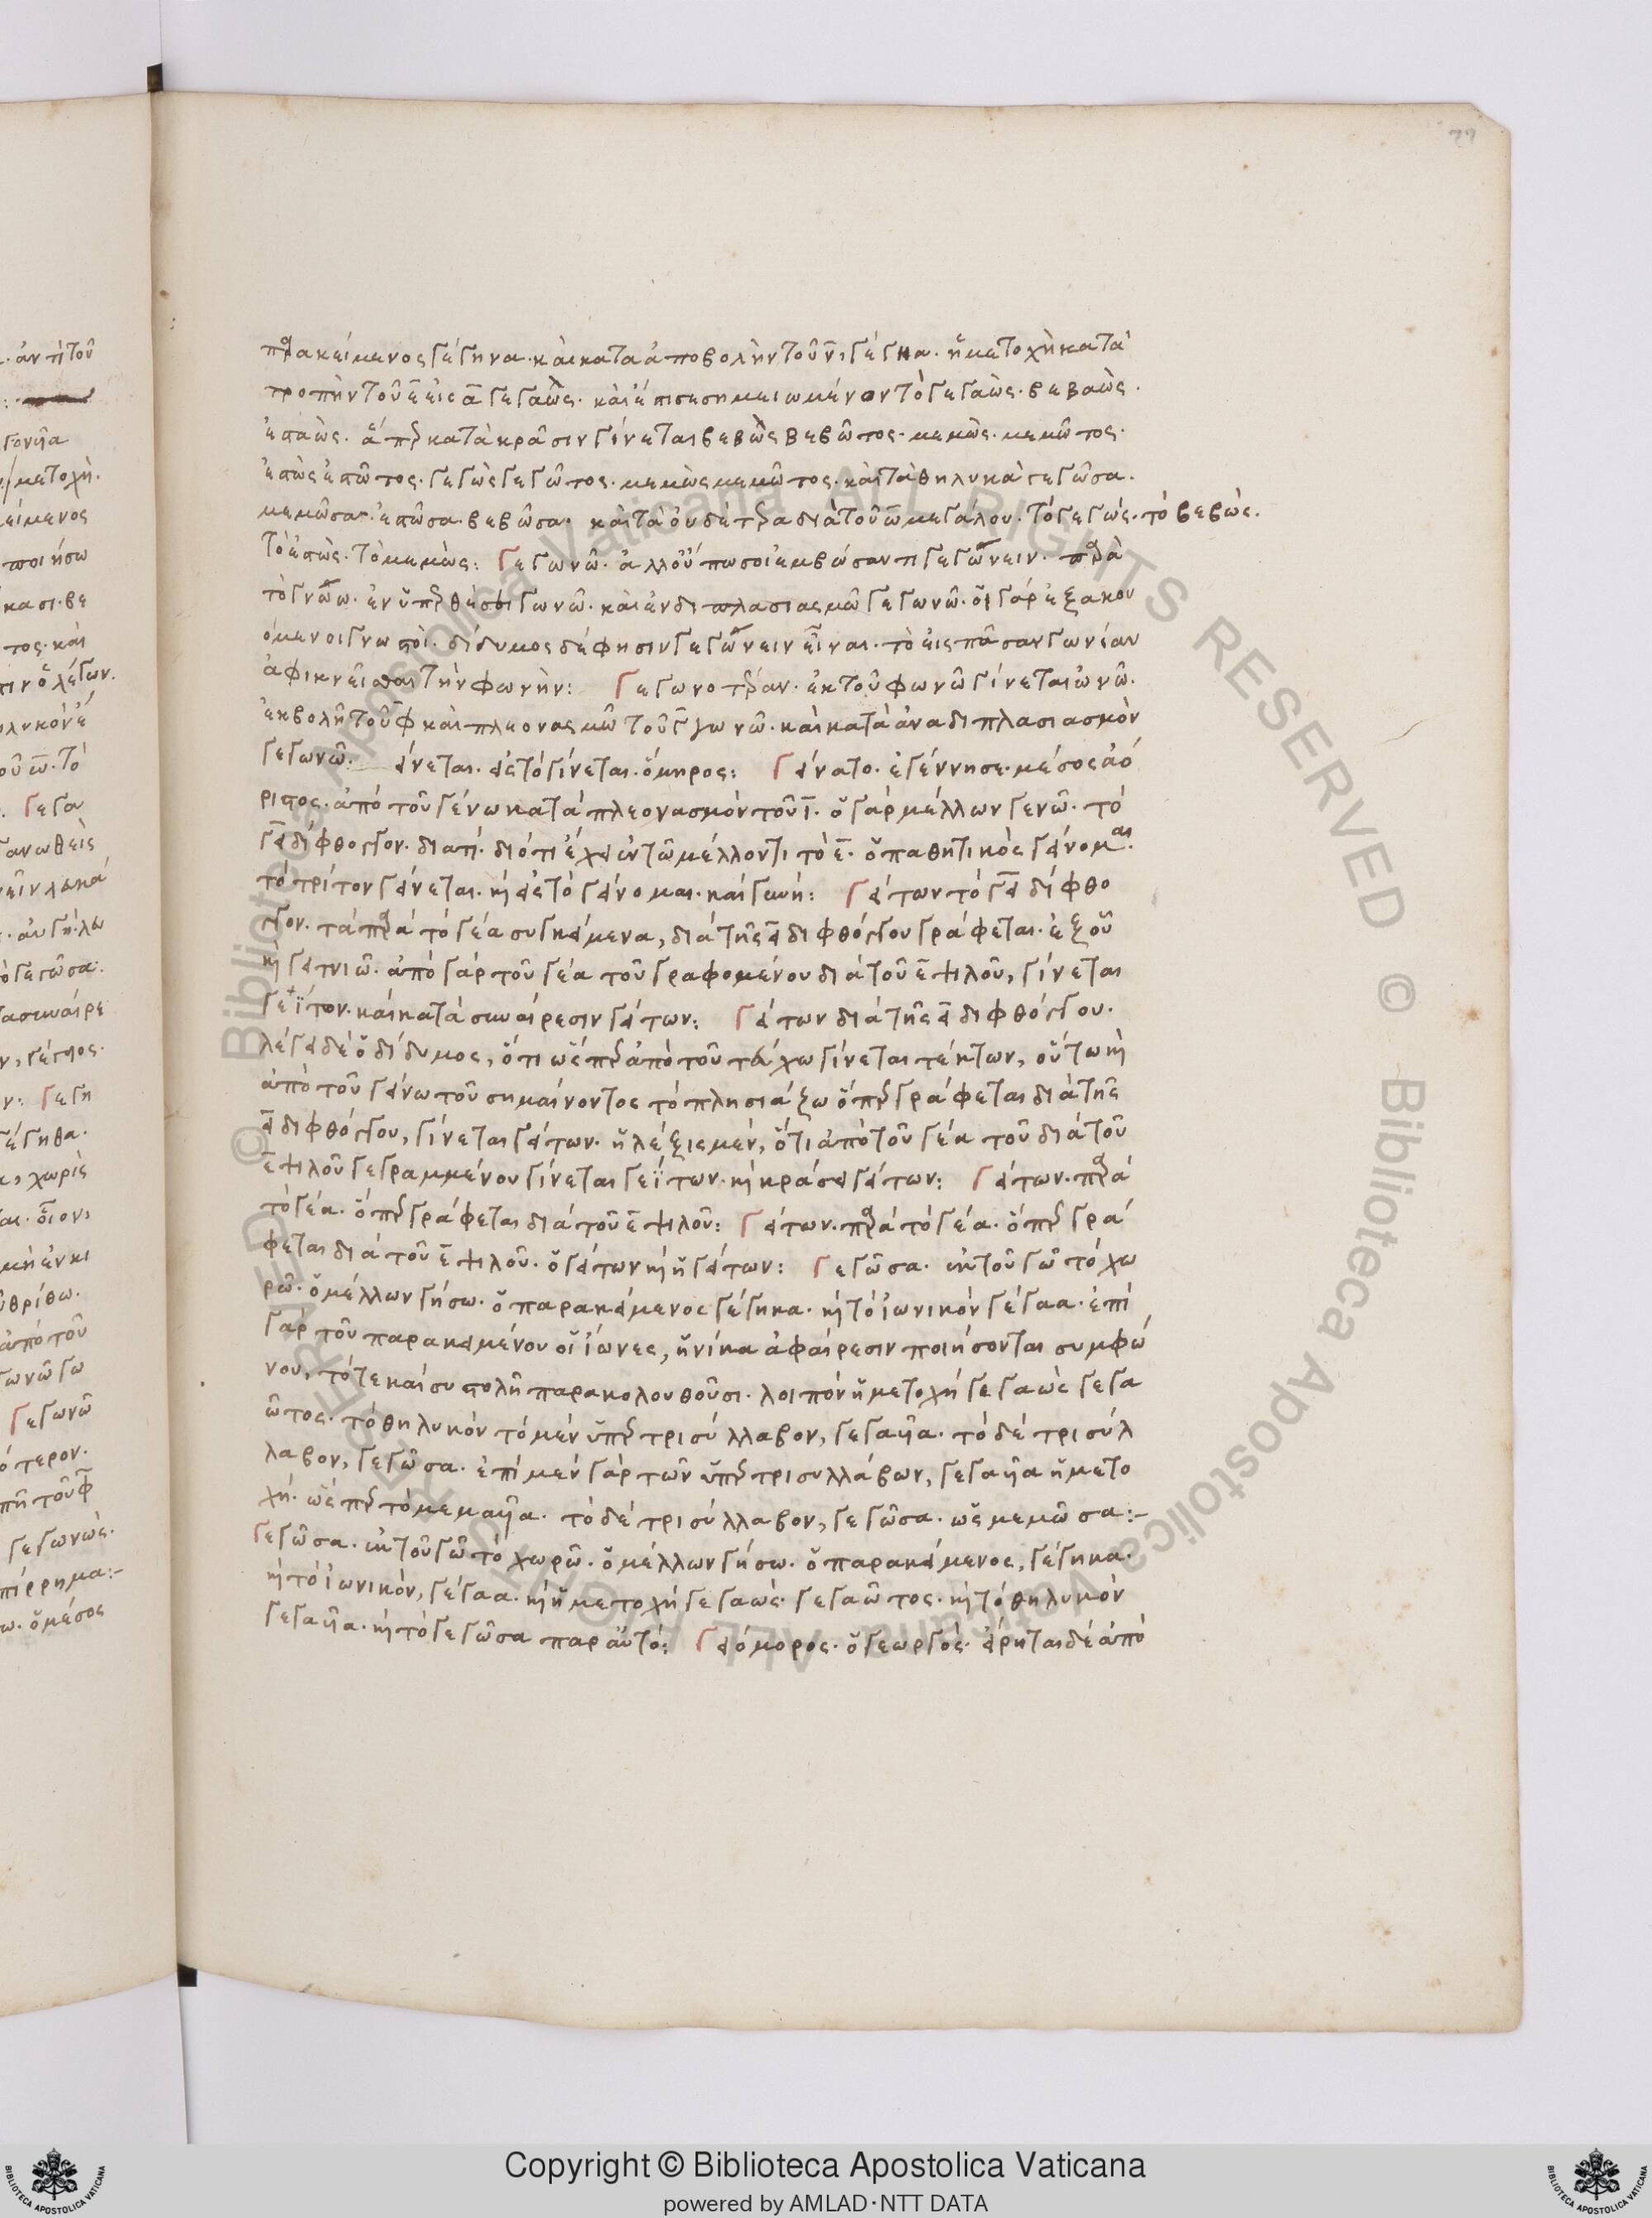 παρακείμενος γέγηνα· καὶ κατὰ ἀποβολὴν τοῦ ν̄, γέγηα· ἡ μετοχὴ κατὰ
τροπὴν τοῦ ε̄ εἰς ᾱ γεγαὼς· καὶ ἐπισεσημειωμένον τὸ γεγαὼς· βεβαὼς·
ἑσταὼς· ἅπερ κατὰ κρᾶσιν γίνεται βεβὼς βεβῶτος· μεμὼς· μεμῶτος·
ἑστὼς ἑστῶτος· γεγὼς γεγῶτος· μεμὼς μεμῶτος· καὶ τὰ θηλυκὰ γεγῶσα·
μεμῶσα· ἑστῶσα· βεβῶσα· καὶ τὰ οὐδέτερα διὰ τοῦ ω̄ μεγάλου· τὸ γεγώς· τὸ βεβὼς·
τὸ ἑστὼς· τὸ μεμὼς: Γεγωνῶ· ἀλλ' οὔπω σοι ἐμβώσαντι γεγώνειν· παρὰ
τὸ γνώω· ἐν ὑπερθέσει γωνῶ· καὶ ἐν διπλασιασμῶ γεγωνῶ· οἱ γὰρ ἐξακου
όμενοι γνωστοὶ· δίδυμος δέ φησιν γεγώνειν εἶναι· τὸ εἰς πᾶσαν γωνίαν
ἀφικνεῖσθαι τὴν φωνὴν: Γεγωνοτέραν· ἐκ τοῦ φωνῶ γίνεται ὠνῶ·
ἐκβολῆ τοῦ φ̄ καὶ πλεονασμῶ τοῦ γ̄ γωνῶ· καὶ κατὰ ἀναδιπλασιασμὸν
γεγωνῶ: είνεται· ἀντὶ τὸ γίνεται· ὅμηρος: Γείνατο· ἐγέννησε· μέσος ἀό
ριστος· ἀπὸ τοῦ γένω κατὰ πλεονασμὸν τοῦ ῑ· ὁ γὰρ μέλλων γενῶ· τὸ
γει δίφθογγον· διατί· διότι ἔχει ἐν τῶ μέλλοντι τὸ ε̄· ὁ παθητικὸς γείνομαι·
τὸ τρίτον γείνεται· καὶ τὸ γείνομαι· καὶ γωνή: Γείτων τὸ γει δίφθο
γγον· τὰ παρὰ τὸ γέα συγκείμενα, διὰ τῆς ει διφθόγγου γράφεται· ἐξ οὗ
καὶ γειτνιῶ· ἀπὸ γὰρ τοῦ γέα τοῦ γραφομένου διὰ τοῦ ε̄ ψιλοῦ, γίνεται
γεΐτον· καὶ κατὰ συναίρεσιν γείτων: Γείτων διὰ τῆς ει διφθόγγου·
λέγει δὲ ὁ δίδυμος, ὅτι ὥσπερ ἀπὸ τοῦ τεύχω γίνεται τέκτων, οὕτω καὶ
ἀπὸ τοῦ γείνω τοῦ σημαίνοντος τὸ πλησιάζω ὅπερ γράφεται διὰ τῆς
ει διφθόγγου, γίνεται γείτων· ἢ λέξις μέν, ὅτι ἀπὸ τοῦ γέα τοῦ διὰ τοῦ
ε̄ ψιλοῦ γεγραμμένου γίνεται γεΐτων· καὶ κράσει γείτων: Γείτων· παρὰ
τὸ γέα· ὅπερ γράφεται διὰ τοῦ ε̄ ψιλοῦ: Γείτων· παρὰ τὸ γέα· ὅπερ γρά
φεται διὰ τοῦ ε̄ ψιλοῦ· ὁ γείτων καὶ ἡ γείτων: Γεγῶσα· ἐκ τοῦ γῶ τὸ χω
ρῶ· ὁ μέλλων γήσω· ὁ παρακείμενος γέγηκα· καὶ τὸ ἰωνικὸν γέγαα· ἐπὶ
γὰρ τοῦ παρακειμένου οἱ ἴωνες, ἡνίκα ἀφαίρεσιν ποιήσονται συμφώ
νου, τότε καὶ συστολῆ παρακολουθοῦσι· λοιπὸν ἡ μετοχὴ γεγαὼς γεγα
ῶτος· τὸ θηλυκὸν τὸ μὲν ὑπὲρ τρισύλλαβον, γεγαῦα· τὸ δὲ τρισύλ
λαβον, γεγῶσα· ἐπὶ μὲν γὰρ τῶν ὑπὲρ τρισυλλάβων, γεγαῦα ἡ μετο
χή· ὥσπερ τὸ μεμαῦα· τὸ δὲ τρισύλλαβον, γεγῶσα· ὡς μεμῶσα:-
Γεγῶσα· ἐκ τοῦ γῶ τὸ χωρῶ· ὁ μέλλων γήσω· ὁ παρακείμενος, γέγηκα·
καὶ τὸ ἰωνικὸν, γέγαα· καὶ ἡ μετοχὴ γεγαώς· γεγαῶτος· καὶ τὸ θηλυκὸν
γεγαῦα· καὶ τὸ γεγῶσα παρ αὐτό: Γειόμορος· ὁ γεωργός· εἴρηται δὲ ἀπὸ